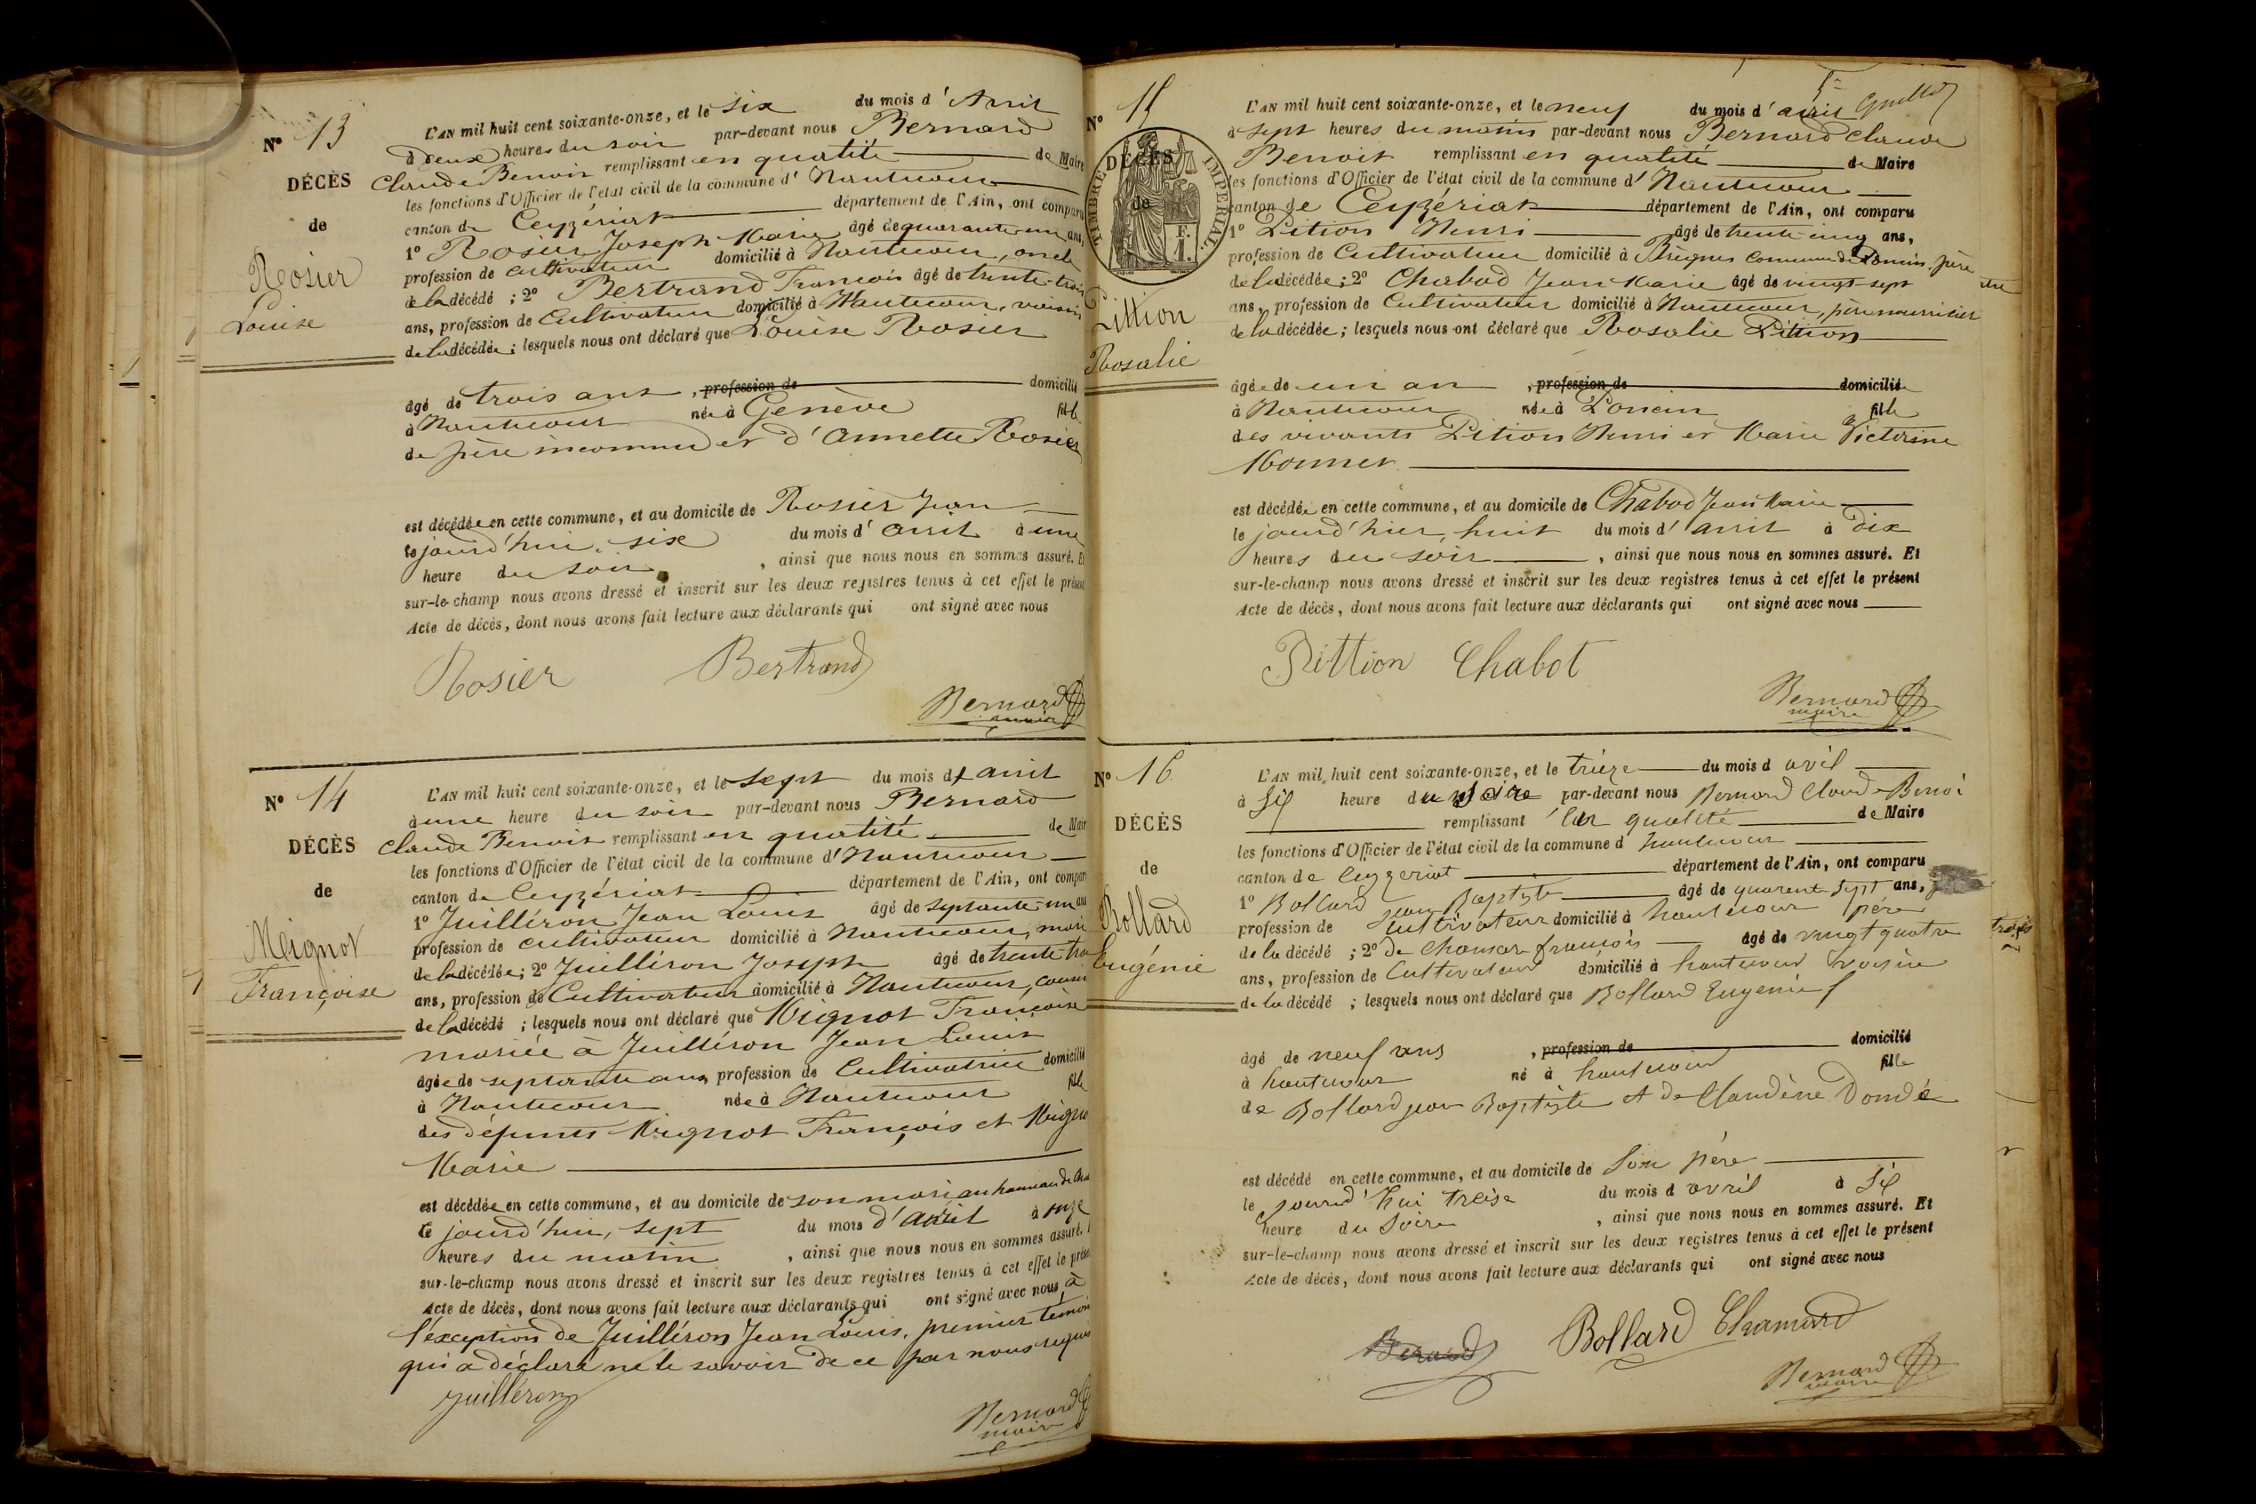 N° 13
DÉCÈS
de
Rosier
Louise
L'AN mil huit cent soixante-onze, et le six du mois d'Avril
à deux heures du soir par-devant nous Bernard
Claude Benoit remplissant en qualité de Maire
les fonctions d'Officier de l'état civil de la commune d'Hautecour
canton de Ceyzériat département de l'Ain, ont comparu
1° Rosier Joseph Marie âgé de quarante-un ans,
profession de cultivateur domicilié à Hautecour, oncle
de la décédé ; 2° Bertrand François âgé de trente-trois
ans, profession de Cultivateur domicilié à Hautecour, voisin
de la décédée ; lesquels nous ont déclaré que Louise Rosier
âgé de trois ans , profession de domicilié
à Hautecour née à Genève fille
de père inconnu et d'Annette Rosier
est décédée en cette commune, et au domicile de Rosier Jean
le jourd'hui, six du mois d'avril à une
heure du soir , ainsi que nous nous en sommes assuré. Et
sur-le-champ nous avons dressé et inscrit sur les deux registres tenus à cet effet le présent
Acte de décès, dont nous avons fait lecture aux déclarants qui ont signé avec nous
Rosier Bertrand
Bernard
maire
N° 14
DÉCÈS
de
Mignot
Françoise
L'AN mil huit cent soixante-onze, et le sept du mois d'avril
à une heure du soir par-devant nous Bernard
Claude Benoit remplissant en qualité de Maire
les fonctions d'Officier de l'état civil de la commune d'Hautecour
canton de Ceyzériat département de l'Ain, ont comparu
1° Juilléron Jean Louis âgé de septante-un ans
profession de cultivateur domicilié à Hautecour, mari
de la décédée ; 2° Juilléron Joseph âgé de trente trois
ans, profession de Cultivateur domicilié à Hautecour, cousin
de la décédé ; lesquels nous ont déclaré que Mignot Françoise
mariée à Juilléron Jean Louis
âgée de septante ans profession de Cultivatrice domicilié
à Hautecour née à Hautecour fille
des défunts Mignot François et Mignot
Marie
est décédée en cette commune, et au domicile de son mari au hameau de
le jourd'hui, sept du mois d'avril à onze
heures du matin , ainsi que nous nous en sommes assuré.
sur-le-champ nous avons dressé et inscrit sur les deux registres tenus à cet effet le présent
Acte de décès, dont nous avons fait lecture aux déclarants qui ont signé avec nous, à
l'exception de Juilléron Jean Louis, premier témoin
qui a déclaré ne le savoir de ce par nous requis
Juilléron
Bernard
maire
N° 15
DÉCÈS
de
TIMBRE IMPÉRIAL
1 F.
Pittion
Rosalie
L'AN mil huit cent soixante-onze, et le neuf du mois d'avril
à sept heures du matin par-devant nous Bernard Claude
Benoit remplissant en qualité de Maire
les fonctions d'Officier de l'état civil de la commune d'Hautecour
canton de Ceyzériat département de l'Ain, ont comparu
1° Pition Henri âgé de trente-cinq ans,
profession de Cultivateur domicilié à commune de Poncin, père
de la décédée ; 2° Chabod Jean Marie âgé de vingt-sept
ans, profession de Cultivateur domicilié à Hautecour, père nourricier
de la décédée ; lesquels nous ont déclaré que Rosalie Pition
âgée de un an , profession de domicilié
à Hautecour née à Poncin fille
des vivants Pition Henri et Marie Victorine
Monnet
est décédée en cette commune, et au domicile de Chabod Jean Marie
le jourd'hier, huit du mois d'avril à Dix
heures du soir , ainsi que nous nous en sommes assuré. Et
sur-le-champ nous avons dressé et inscrit sur les deux registres tenus à cet effet le présent
Acte de décès, dont nous avons fait lecture aux déclarants qui ont signé avec nous
Pittion Chabot
Bernard
maire
N° 16
DÉCÈS
de
Bollard
Eugénie
L'AN mil huit cent soixante-onze, et le trieze du mois d avril
à six heure du soire par-devant nous Bernard Claude Benoi
remplissant en qualité de Maire
les fonctions d'Officier de l'état civil de la commune d hautecour
canton de Ceyzeriat département de l'Ain, ont comparu
1° Bollard jean Baptiste âgé de quarent sept ans,
profession de Cultivateur domicilié à hautecour père
de la décédé ; 2° de Chamard françois âgé de vingt quatre
ans, profession de Cultivateur domicilié à hautecour voisin
de la décédé ; lesquels nous ont déclaré que Bollard Eugenie
âgé de neuf ans , profession de domicilié
à hautecour né à hautecour fille
de Bollard jean Baptiste et de Claudène Dondé
est décédé en cette commune, et au domicile de son père
le jourd'hui treise du mois d avril à six
heure du soire , ainsi que nous nous en sommes assuré. Et
sur-le-champ nous avons dressé et inscrit sur les deux registres tenus à cet effet le présent
Acte de décès, dont nous avons fait lecture aux déclarants qui ont signé avec nous
Bollard Chamard
Bernard
maire